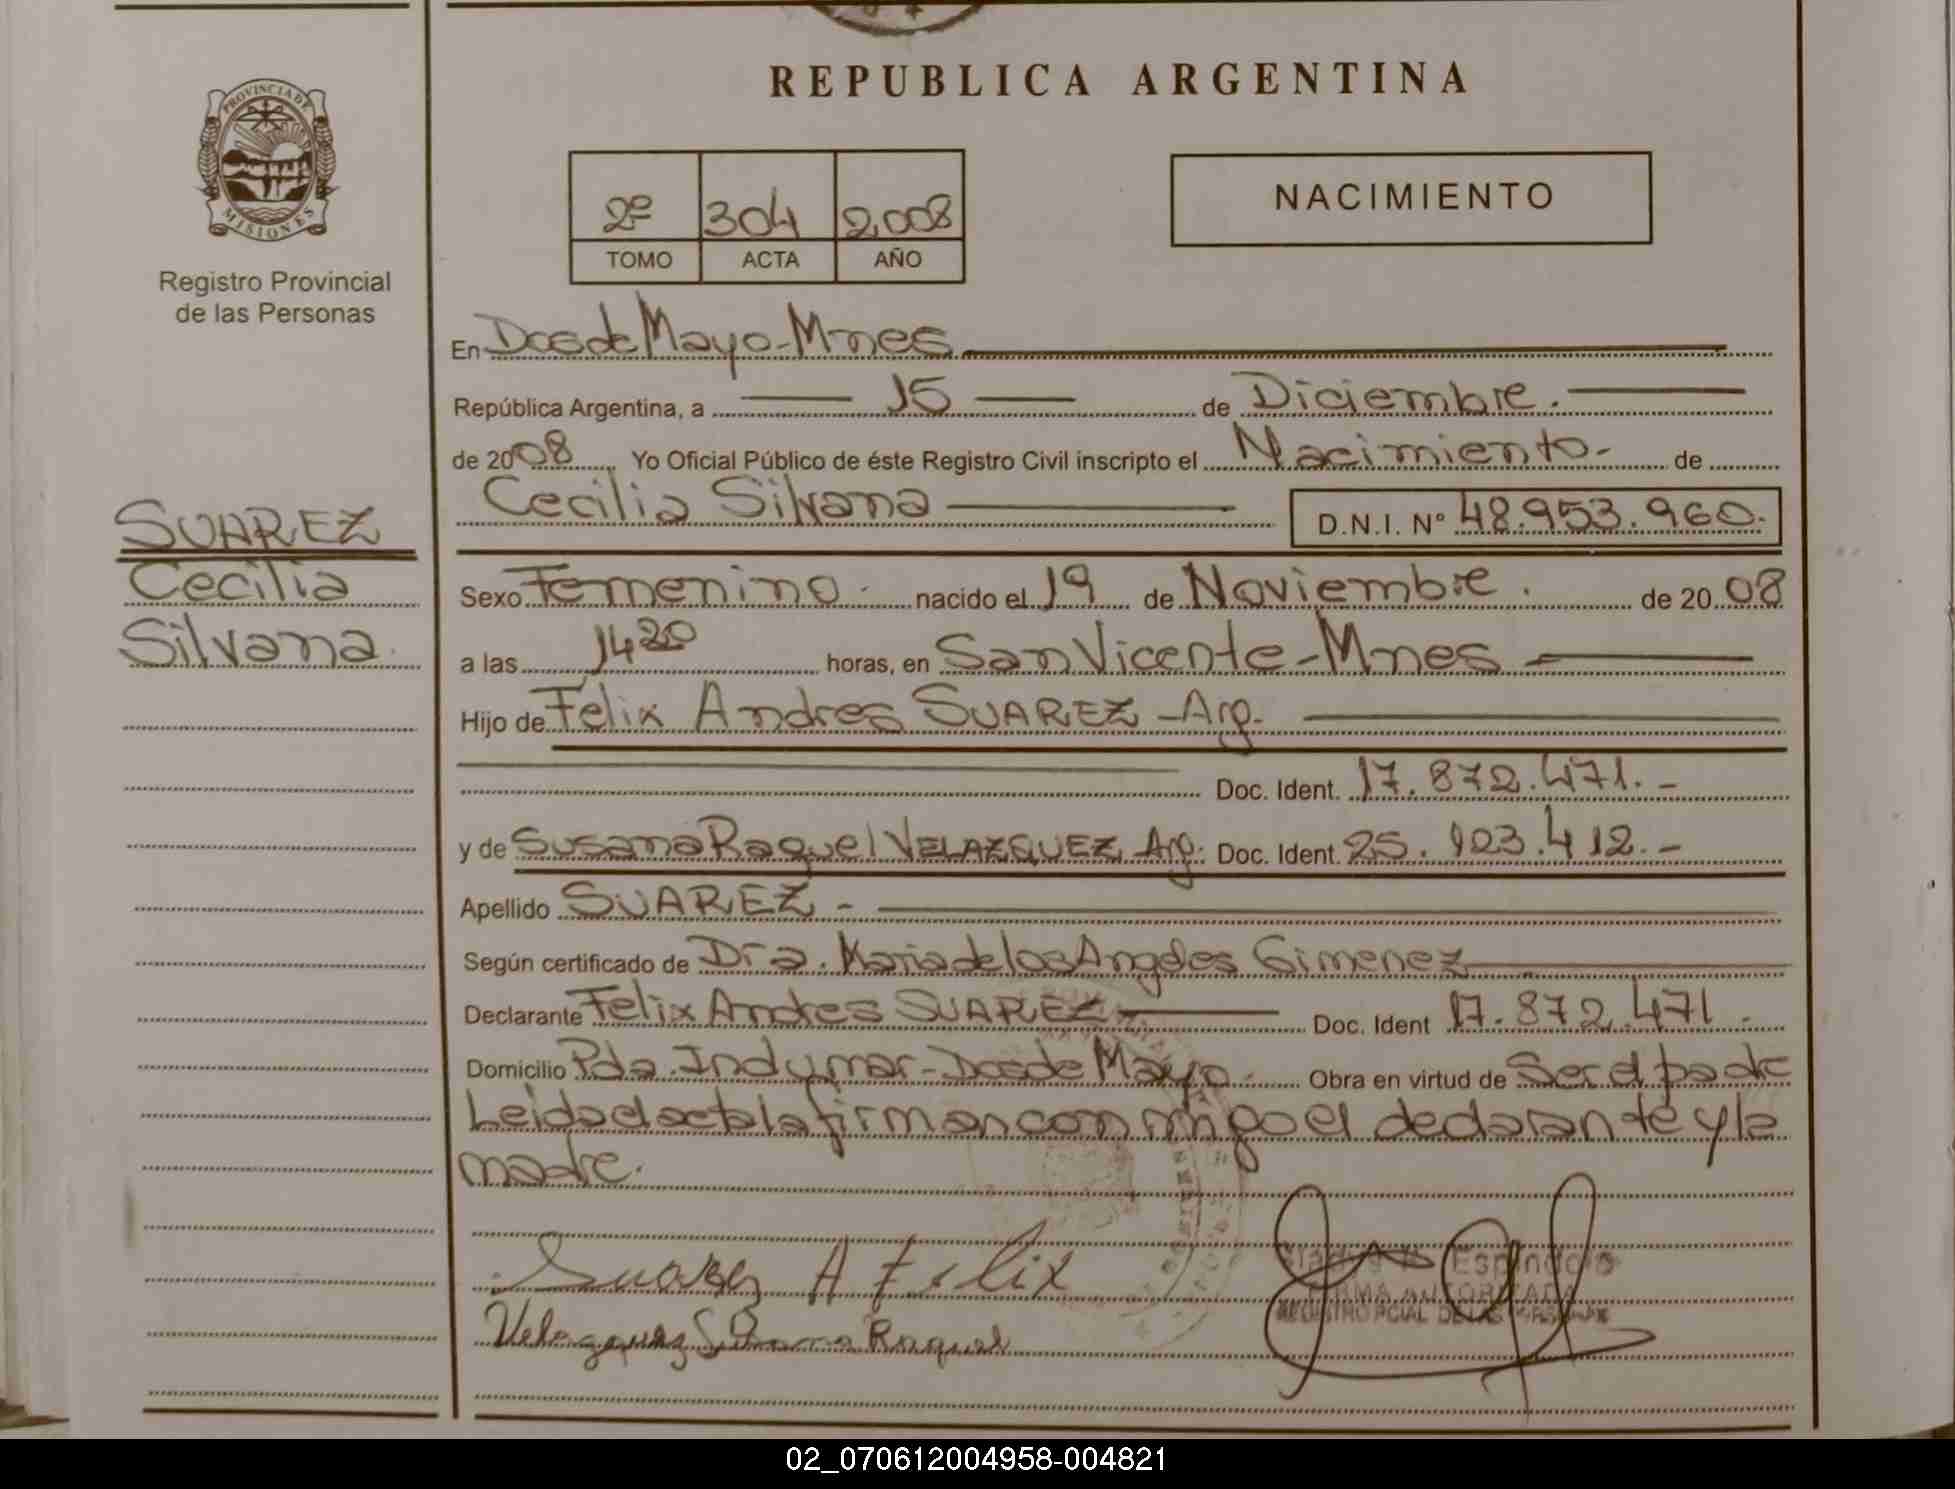 REPUBLICA ARGENTINA
PROVINCIA DE
MISIONES
Registro Provincial
de las Personas
2º 304 2.008
TOMO ACTA AÑO
NACIMIENTO
En Dos de Mayo-Mnes
República Argentina, a 15 de Diciembre.
de 2008 Yo Oficial Público de éste Registro Civil inscripto el Nacimiento- de
Cecilia Silvana D.N.I. Nº 48.953.960.
SUAREZ
Cecilia
Silvana.
Sexo Femenino. nacido el 19 de Noviembre. de 2008
a las 1420 horas, en San Vicente-Mnes
Hijo de Felix Andres SUAREZ -Arg.
Doc. Ident. 17.872.471.-
y de Susana Raquel VELAZQUEZ Arg. Doc. Ident. 25.923.412.-
Apellido SUAREZ -
Según certificado de Dra. Maria de los Angeles Gimenez
Declarante Felix Andres SUAREZ Doc. Ident 17.872.471.
Domicilio Pda. Indumar-Dos de Mayo. Obra en virtud de Ser el padre
Leida el acta la firman conmigo el declarante y la
madre.
Suarez A Felix
Velazquez Susana Raquel
Espindola
FIRMA AUTORIZADA
REGISTRO PCIAL DE LAS PERSONAS
02_070612004958-004821